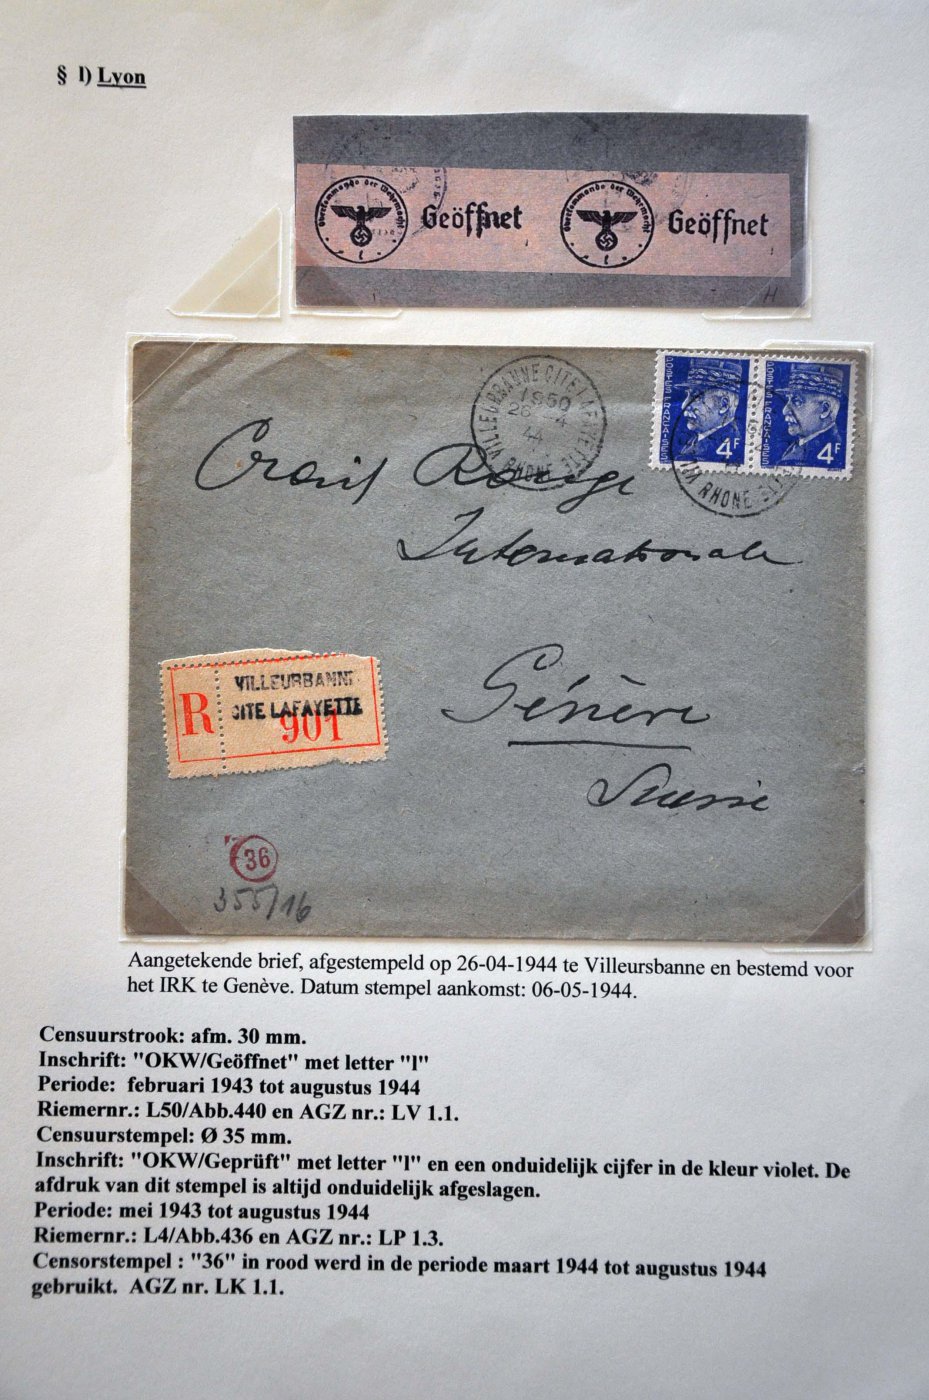 § l) Lyon
Oberkommando der Wehrmacht
l
Geöffnet
Oberkommando der Wehrmacht
l
Geöffnet
H
VILLEURBANNE CITE LAFAYETTE
1850
26 - 4
44
RHONE
POSTES FRANÇAISES
4F
POSTES FRANÇAISES
4F
RHONE
Croix Rouge
Internationale
Génève
Suisse
R
VILLEURBANNE
CITE LAFAYETTE
901
36
355/16
Aangetekende brief, afgestempeld op 26-04-1944 te Villeursbanne en bestemd voor
het IRK te Genève. Datum stempel aankomst: 06-05-1944.
Censuurstrook: afm. 30 mm.
Inschrift: "OKW/Geöffnet" met letter "l"
Periode: februari 1943 tot augustus 1944
Riemernr.: L50/Abb.440 en AGZ nr.: LV 1.1.
Censuurstempel: Ø 35 mm.
Inschrift: "OKW/Geprüft" met letter "l" en een onduidelijk cijfer in de kleur violet. De
afdruk van dit stempel is altijd onduidelijk afgeslagen.
Periode: mei 1943 tot augustus 1944
Riemernr.: L4/Abb.436 en AGZ nr.: LP 1.3.
Censorstempel : "36" in rood werd in de periode maart 1944 tot augustus 1944
gebruikt. AGZ nr. LK 1.1.